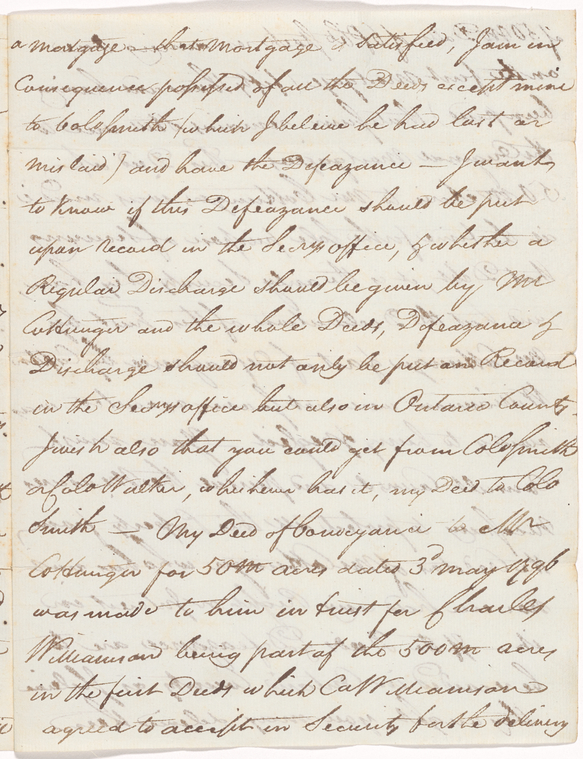 a mortgage that Mortgage is Satisfied, I am in
Consequence possessed of all the Deeds except mine
to Colo Smith (which I believe he had lost or
mislaid) and have the Defeazance — I want
to know if this Defeazance should be put
upon record in the Secrys office, & whether a
Regular Discharge should be given by Mr
Cottringer and the whole Deeds, Defeazance &
Discharge should not only be put on Record
in the Secrys office but also in Ontario County
I wish also that you could get from Colo Smith
or Colo Walker, whichever has it, my Deed to Colo
Smith — My Deed of Conveyance to Mr
Cottringer for 50m acres dated 3d May 1796
was made to him in trust for Charles
Williamson being part of the 500m acres
in the first Deeds which Ca Williamson
agreed to accept in Security for the delivery